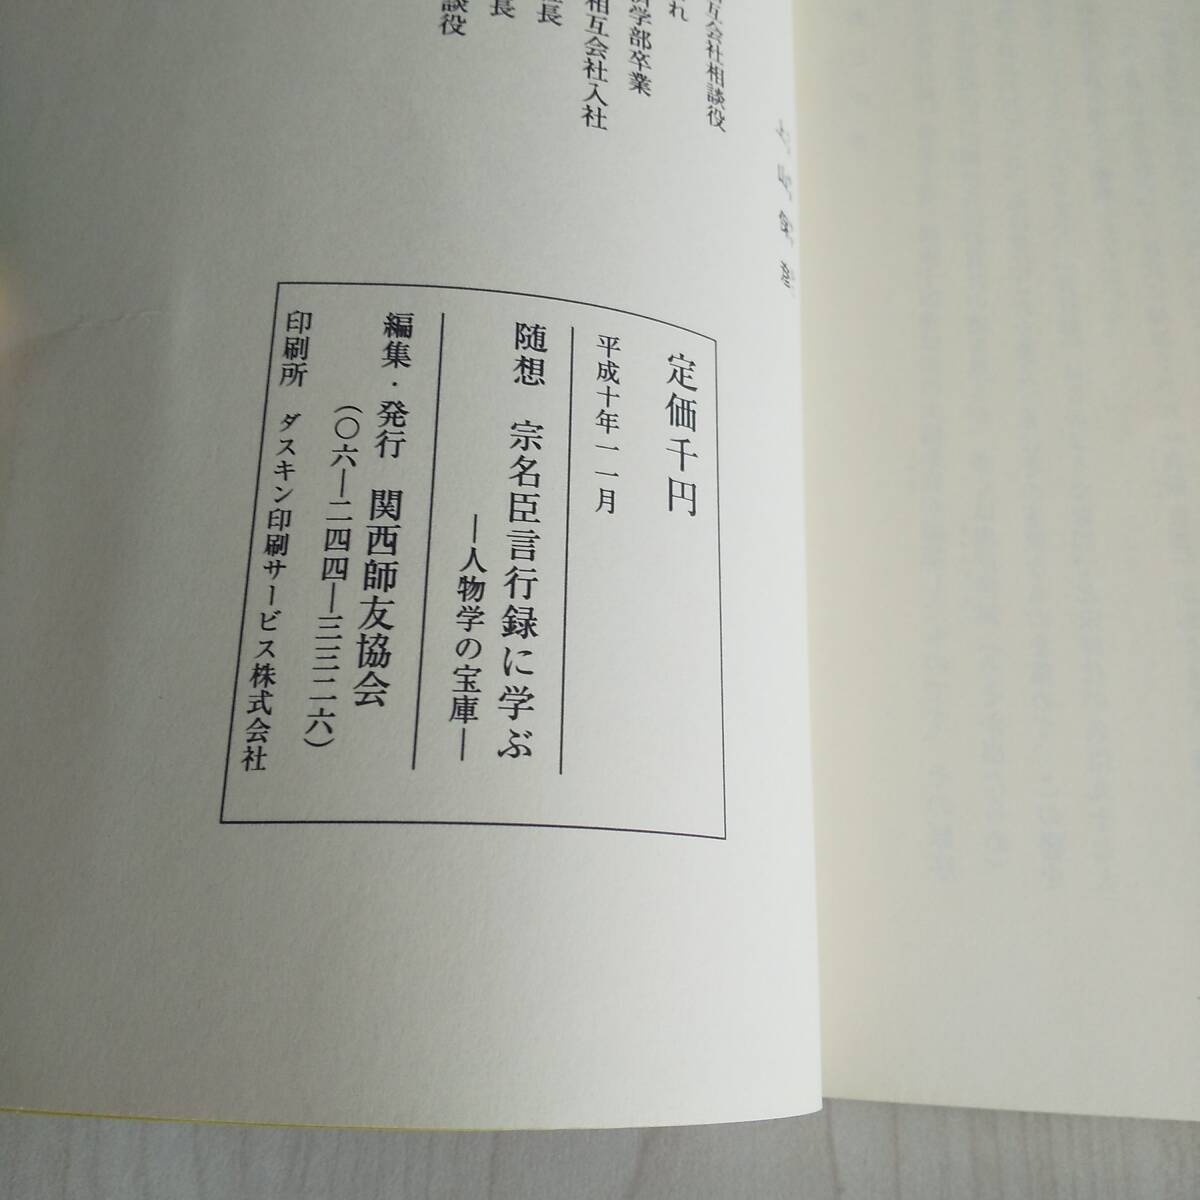 互会社相談役
れ
学部卒業
相互会社入社
長
長
談役
定価千円
平成十年一一月
随想　宗名臣言行録に学ぶ
―人物学の宝庫―
編集・発行　関西師友協会
(〇六―二四四―三三二六)
印刷所　ダスキン印刷サービス株式会社